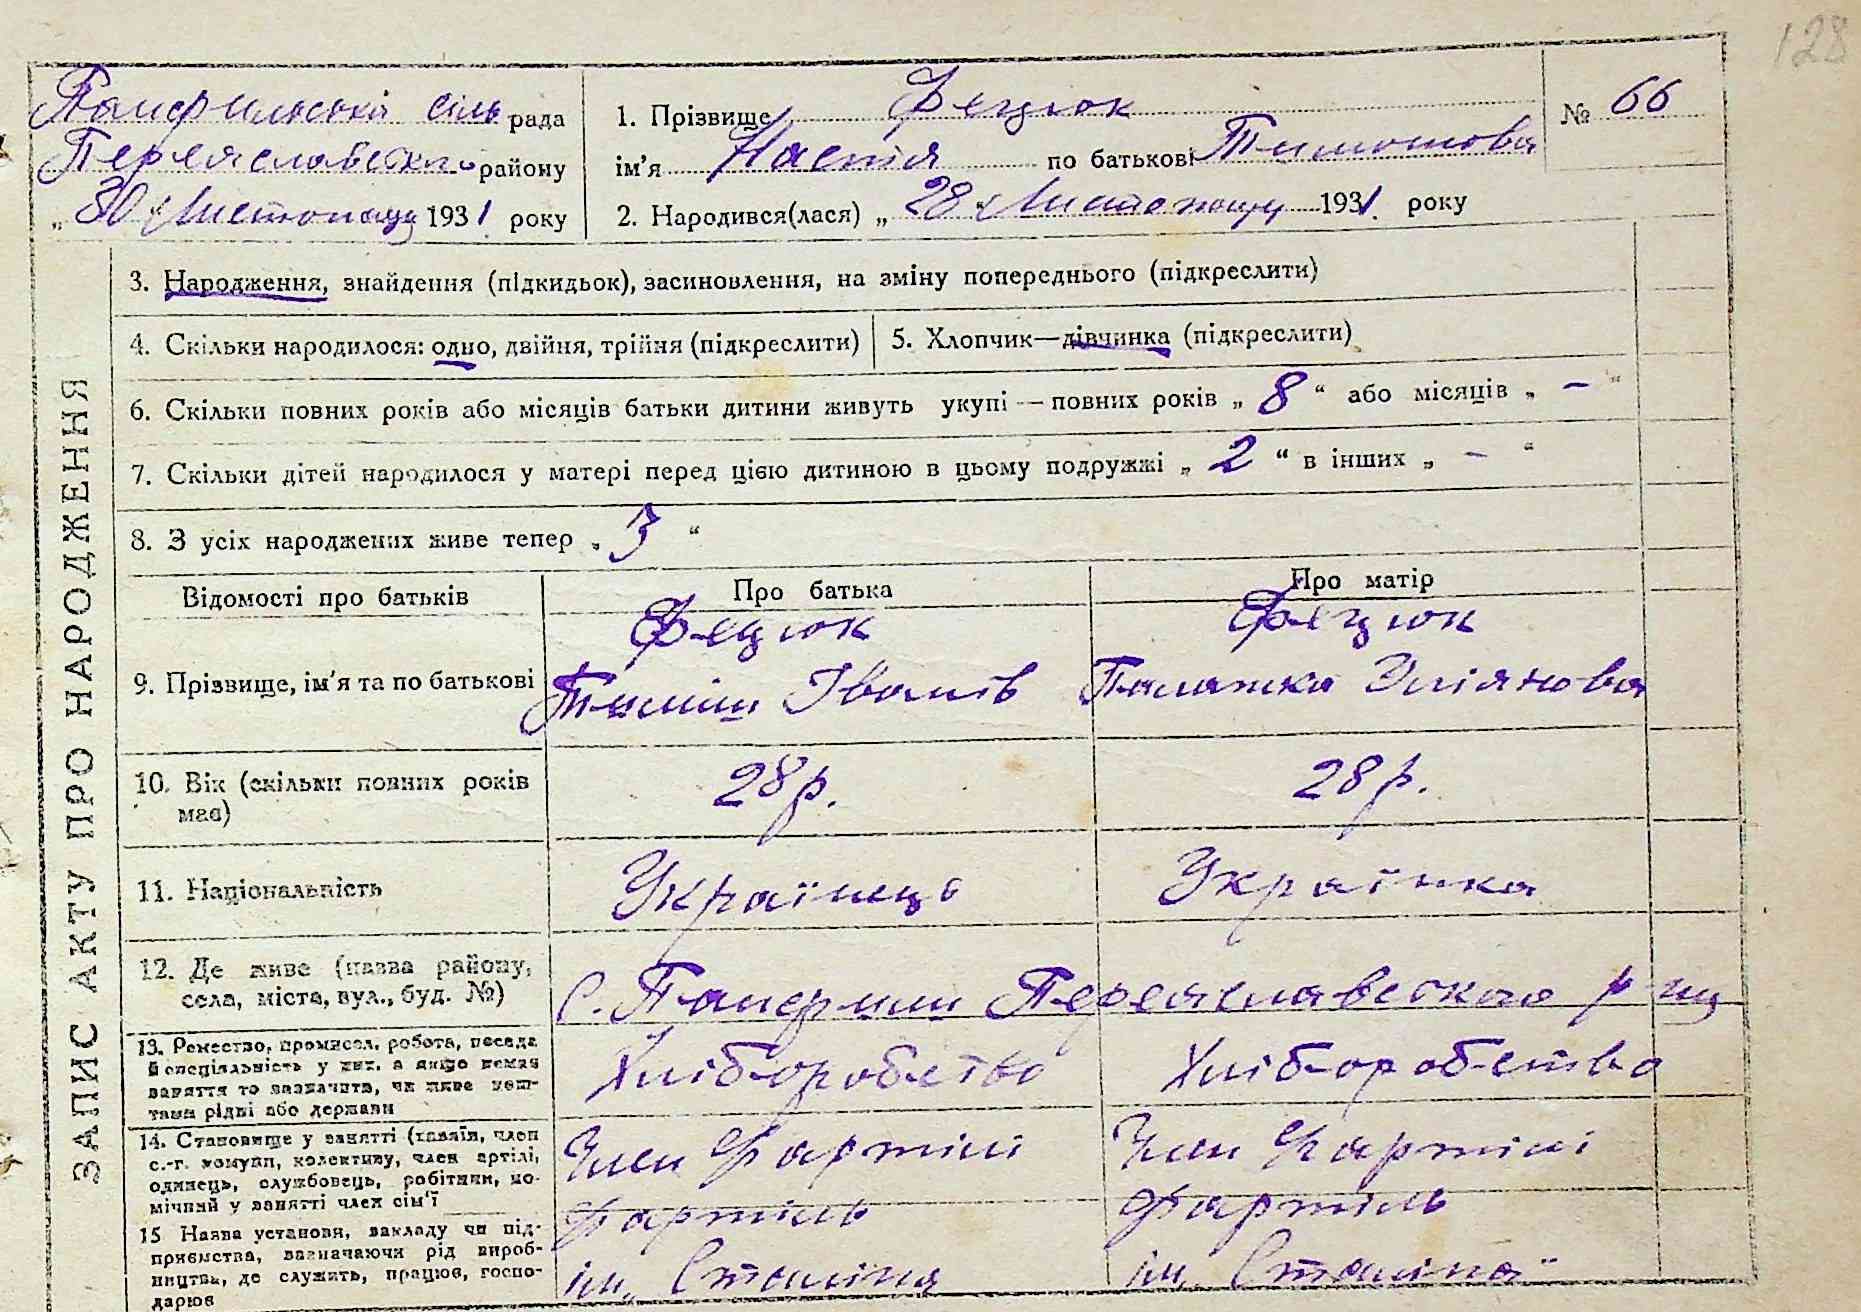 128
Панфильська сіль рада
Переяславського району
„30“ Листопаду 1931 року
1. Прізвище Фецюк
ім'я Настя по батькові Тимошова
2. Народився(лася) „28“ Листопаду 1931 року
№ 66
ЗАПИС АКТУ ПРО НАРОДЖЕННЯ
3. Народження, знайдення (підкидьок), засиновлення, на зміну попереднього (підкреслити)
4. Скільки народилося: одно, двійня, трійня (підкреслити)
5. Хлопчик—дівчинка (підкреслити)
6. Скільки повних років або місяців батьки дитини живуть укупі — повних років „ 8 “ або місяців „ – “
7. Скільки дітей народилося у матері перед цією дитиною в цьому подружжі „ 2 “ в інших „ – “
8. З усіх народжених живе тепер „ 3 “
Відомості про батьків
Про батька
Про матір
9. Прізвище, ім'я та по батькові
Фецюк
Тиміш Іванів
Фецюк
Палажка Омілянова
10. Вік (скільки повних років
має)
28 р.
28 р.
11. Національність
Українець
Українка
12. Де живе (назва району,
села, міста, вул., буд. №)
С. Панфили Переяславського р-ну
13. Ремество, промисел, робота, посада
й спеціяльність у них, а якщо немає
заняття то зазначити, чи живе кош-
тами рідні або держави
Хліборобство
Хліборобство
14. Становище у занятті (хазяїн, член
с.-г. комуни, колективу, член артілі,
одинець, службовець, робітник, по-
мічний у занятті член сім'ї
Член Фартілі
Член Фартілі
15 Назва установи, закладу чи під-
приємства, зазначаючи рід вироб-
ництва, де служить, працює, госпо-
дарює
Фартіль
ім. Сталіна
Фартіль
ім. Сталіна